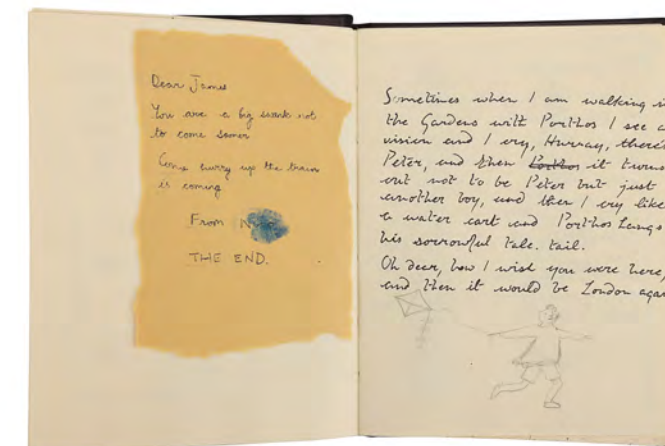 Dear James
You are a big swank not
to come
Come hurry up the train
is coming
From
THE END.
Sometimes when I am walking in
the Gardens with Porthos I see a
vision and I cry, Hurray, there's
Peter, and then Porthos it turns
out not to be Peter but just
another boy, and then I cry like
a water cart and Porthos hangs
his sorrowful tale. tail.
Oh dear, how I wish you were here,
and then it would be London again